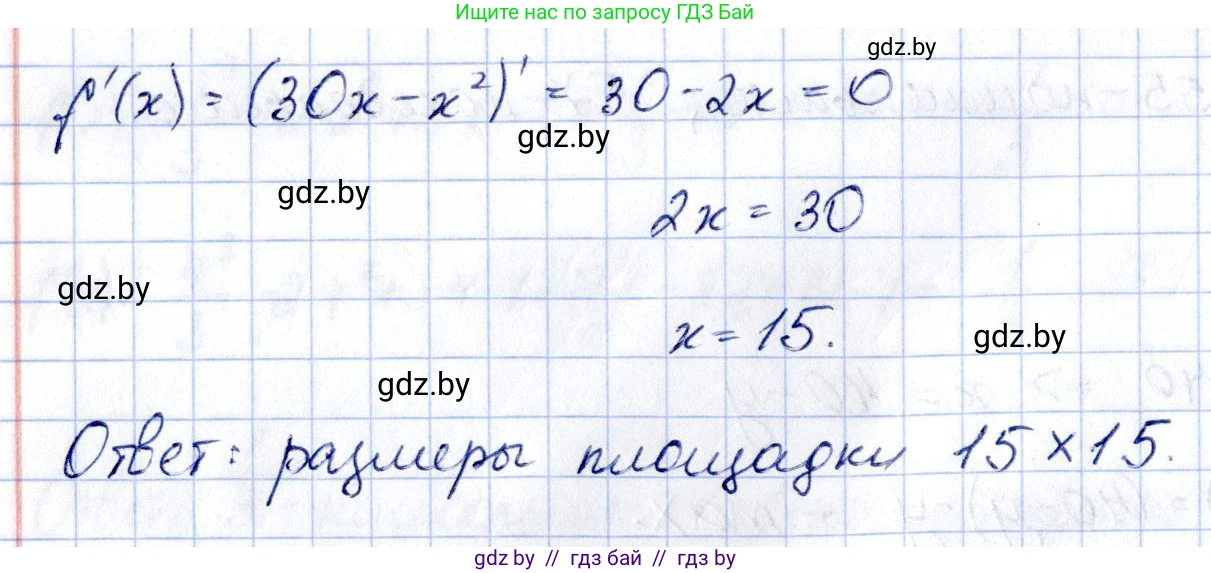 Ищите нас по запросу ГДЗ Бай
gdz.by
f'(x) = (30x - x²)' = 30 - 2x = 0
gdz.by
gdz.by
2x = 30
gdz.by
x = 15.
gdz.by
gdz.by
Ответ: размеры площадки 15 × 15.
gdz.by // гдз бай // гдз by